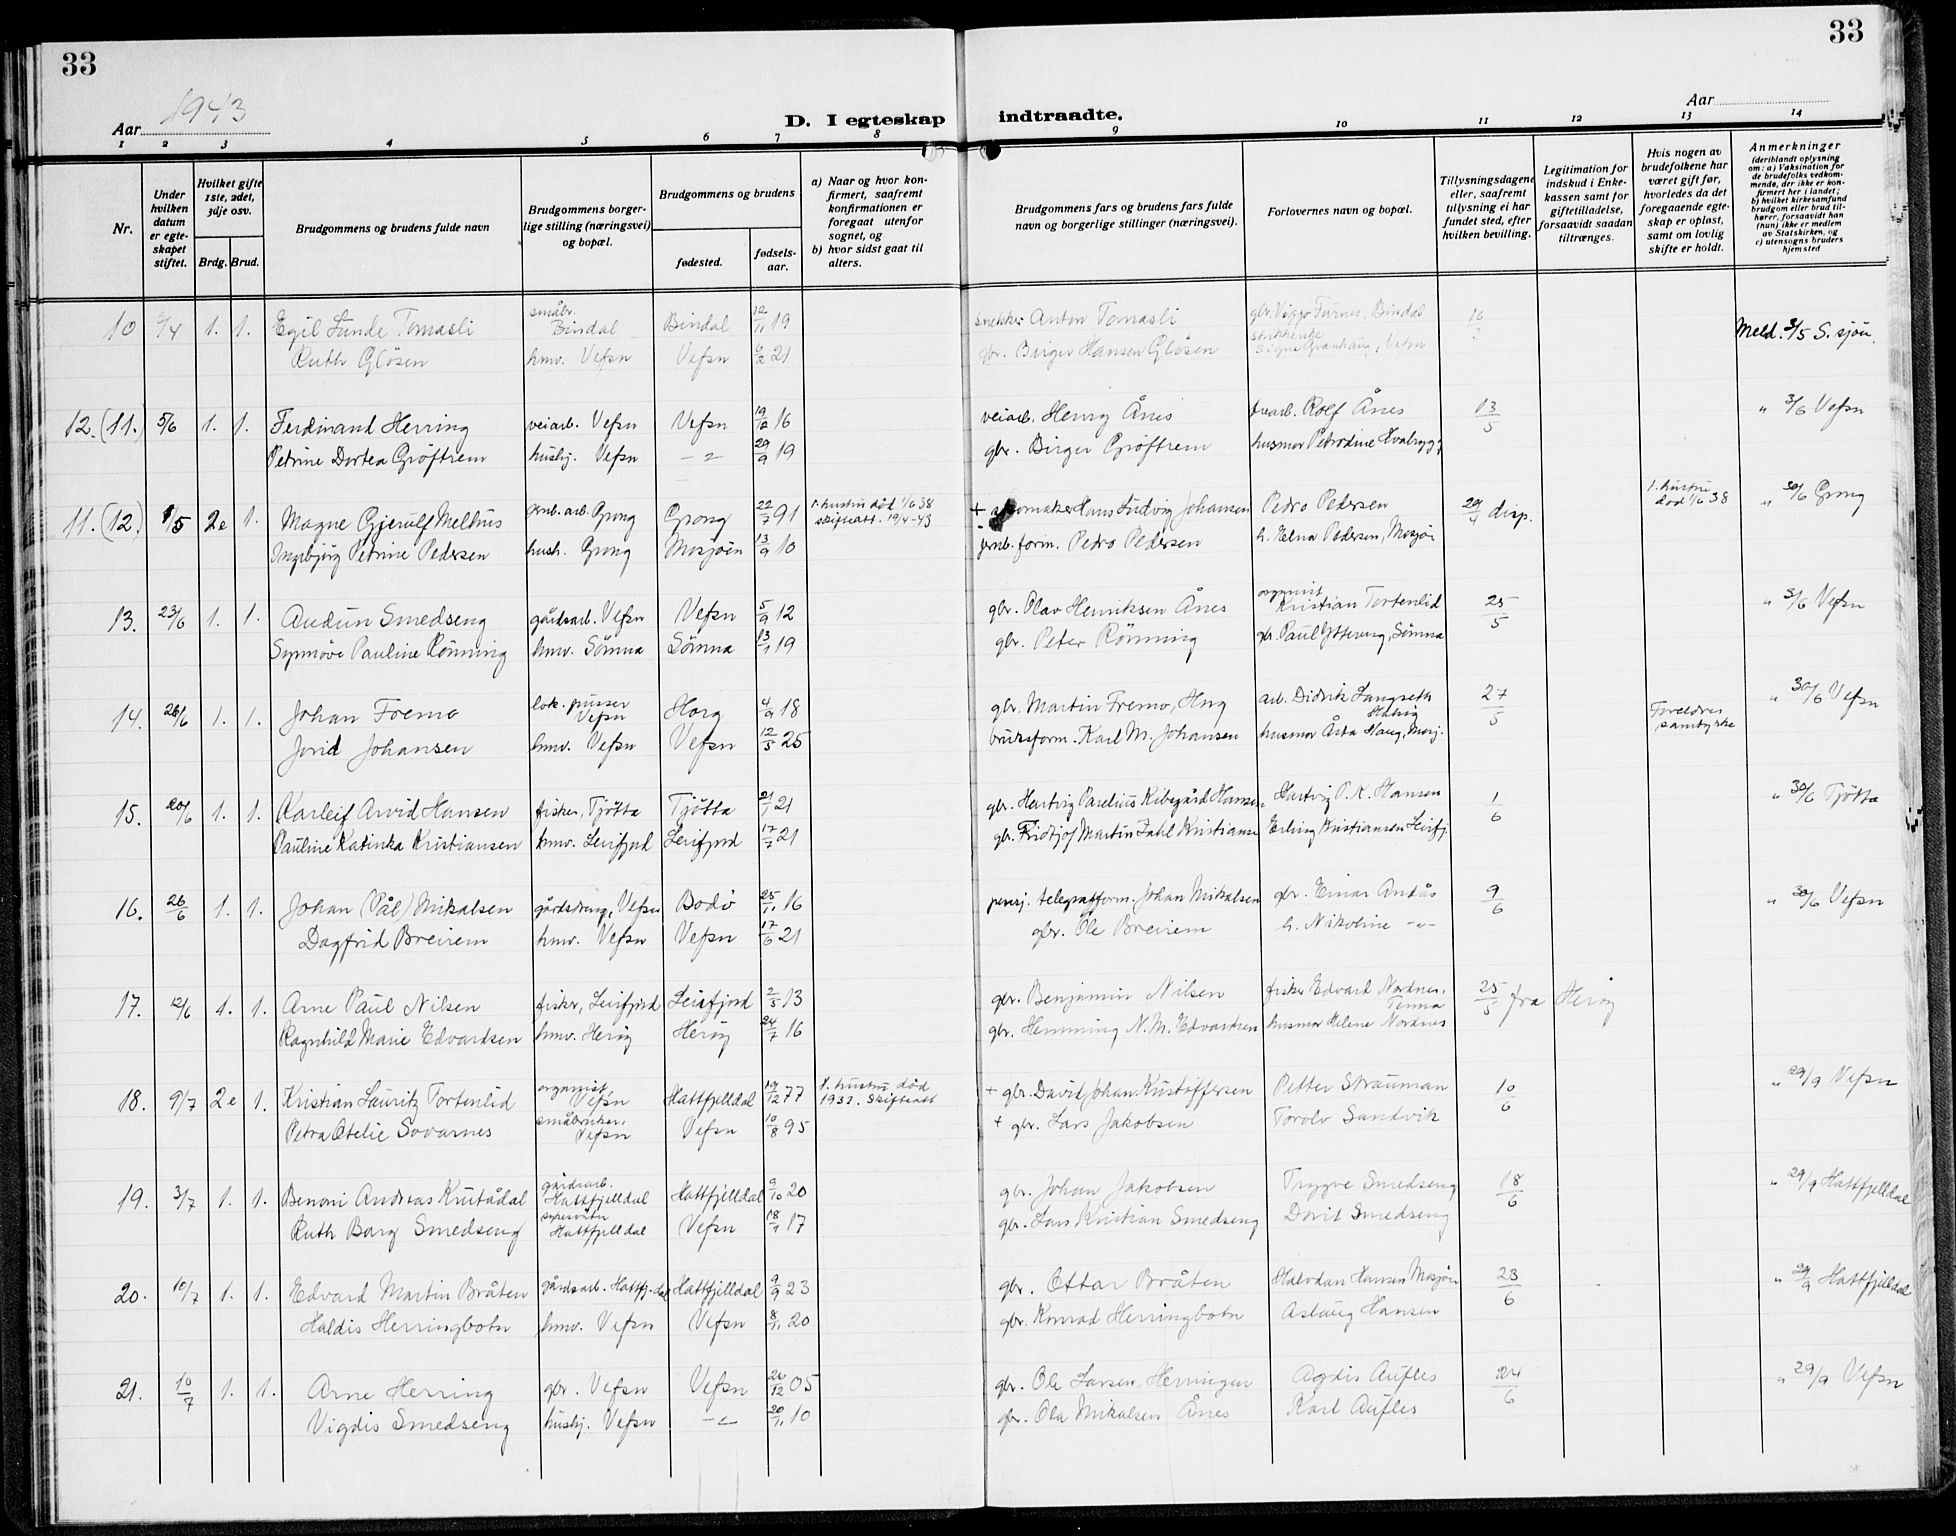 33
33
1943
Aar
D. I egteskap indtraadte.
Aar
1 2 3 4 5 6 7 8 9 10 11 12 13 14
Nr.
Under hvilken datum er egteskapet stiftet.
Hvilket gifte 1ste, 2det, 3dje osv.
Brdg. Brud.
Brudgommens og brudens fulde navn
Brudgommens borgerlige stilling (næringsvei) og bopæl.
Brudgommens og brudens
fødested.
fødselsaar.
a) Naar og hvor konfirmert, saafremt konfirmationen er foregaat utenfor sognet, og
b) hvor sidst gaat til alters.
Brudgommens fars og brudens fars fulde navn og borgerlige stillinger (næringsvei).
Forlovernes navn og bopæl.
Tillysningsdagene eller, saafremt tillysning ei har fundet sted, efter hvilken bevilling.
Legitimation for indskud i Enkekassen samt for giftetilladelse, forsaavidt saadan tiltrænges.
Hvis nogen av brudefolkene har været gift før, hvorledes da det foregaaende egteskap er opløst, samt om lovlig skifte er holdt.
Anmerkninger
(deriblandt oplysning om: a) Vaksination for de brudefolks vedkommende, der ikke er konfirmert her i landet; b) hvilket kirkesamfund brudgom eller brud tilhører, forsaavidt han (hun) ikke er medlem av Statskirken, og c) utensogns bruders hjemsted
10 /4 1. 1. Egil Lunde Tomasli småbr. Bindal Bindal 12/11 19 snekker Anton Tomasli gbr. Viggo Turnes, Bindal 16 Meld. 3/5 S. sjøn.
Ruth Gløsen hmv. Vefsn Vefsn 6/2 21 gbr. Birger Hansen Gløsen Signe Granhaug, Vefsn
12. (11.) 5/6 1. 1. Ferdinand Herring veiarb. Vefsn Vefsn 19/12 16 veiarb. Henry Ånes Rolf Ånes 13/5 " 3/6 Vefsn
Petrine Dortea Grøftrem hushj. Vefsn — " — 29/9 19 gbr. Birger Grøftrem husmor Petrodine
11. (12.) 1/5 2e 1. Magne Gjerulf Melhus jernb. arb. Grong Grong 22/7 91 1. hustru død 1/6 38 skifteatt. 19/4-43 + Hans Ludvig Johansen Pedro Pedersen 29/4 disp. 1. hustru død 1/6 38 " 30/6 Grong
Ingebjørg Petrine Pedersen hush. Grong Mosjøen 13/9 10 jernb. form. Pedro Pedersen h. Elna Pedersen, Mosjøen
13. 23/6 1. 1. Audun Smedseng gårdsarb. Vefsn Vefsn 5/9 12 gbr. Olav Henriksen Ånes organist Kristian Tortenlid 25/5 " 3/6 Vefsn
Synnøve Pauline Rønning hmv. Sømna Sømna 13/1 19 gbr. Peter Rønning gbr. Paul Yttereng, Sømna
14. 26/6 1. 1. Johan Fremo lok. pusser Vefsn Horg 4/9 18 gbr. Martin Fremo, Horg arb. Didrik Langseth 27/5 Foreldres samtykke " 30/6 Vefsn
Jorid Johansen hmv. Vefsn Vefsn 12/5 25 bruksform. Karl M. Johansen husmor Åsta Haug, Mosj.
15. 20/6 1. 1. Karleif Arvid Hansen fisker, Tjøtta Tjøtta 21/1 21 gbr. Hartvig Parelius Kibsgård Hansen Hartvig P. K. Hansen 1/6 " 30/6 Tjøtta
Pauline Katinka Kristiansen hmv. Leirfjord Leirfjord 17/7 21 gbr. Fridtjof Martin Zahl Kristiansen Erling Kristiansen Leirfj.
16. 26/6 1. 1. Johan (Pål) Mikalsen gårdsdreng, Vefsn Bodø 25/11 16 pensj. telegrafform. Johan Mikalsen gbr. Einar Andås 9/6 " 30/6 Vefsn
Dagfrid Breirem hmv. Vefsn Vefsn 17/6 21 gbr. Ole Breirem h. Nikoline — " —
17. 12/6 1. 1. Arne Paul Nilsen fisker, Leirfjord Leirfjord 2/5 13 gbr. Benjamin Nilsen fisker Edvard Nordnes, Tenna 25/5 fra Herøy
Ragnhild Marie Edvardsen hmv. Herøy Herøy 24/7 16 gbr. Hemming N. M. Edvardsen husmor Helene Nordnes
18. 9/7 2e 1. Kristian Lauritz Tortenlid organist, Vefsn Hattfjelldal 19/12 77 1. hustru død 1932. Skifteatt + gbr. David Johan Kristoffersen Petter Strauman 10/6 " 29/9 Vefsn
Petra Otelie Sovarnes småbruker, Vefsn Vefsn 10/8 95 + gbr. Lars Jakobsen Torolv Sandvik
19. 3/7 1. 1. Benoni Andreas Krutådal gårdsarb. Hattfjelldal Hattfjelldal 9/10 20 gbr. Johan Jakobsen Trygve Smedseng 18/6 " 29/9 Hattfjelldal
Ruth Borg Smedseng Hattfjelldal Vefsn 18/1 17 gbr. Lars Kristian Smedseng Dorit Smedseng
20. 10/7 1. 1. Edvard Martin Bråten gårdsarb. Hattfj.dal Hattfjelldal 9/9 23 gbr. Ottar Bråten Halvdan Hansen Mosjøen 23/6 " 29/9 Hattfjelldal
Haldis Herringbotn hmv. Vefsn Vefsn 8/11 20 gbr. Konrad Herringbotn Aslaug Hansen
21. 10/7 1. 1. Arne Herring gbr. Vefsn Vefsn 20/12 05 gbr. Ole Larsen Herringen Agdis Aufles 24/6 " 29/9 Vefsn
Vigdis Smedseng hushj. Vefsn — " — 20/11 10 gbr. Ola Mikalsen Ånes Karl Aufles